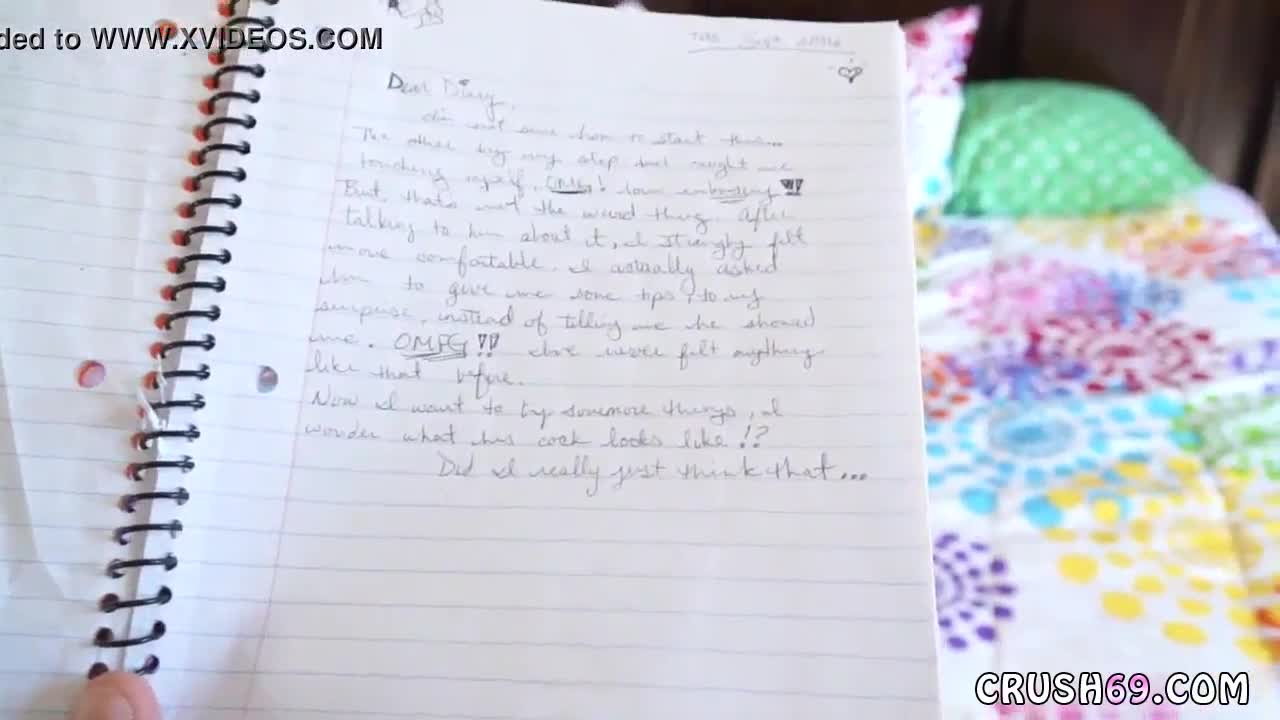 ded to WWW.XVIDEOS.COM
Dear Diary,
I'm not sure how to start this...
The other day my step dad caught me
touching myself. OMG!
But, thats not the weird thing. After
talking to him about it, I strangly felt
more comfortable. I actually asked
him to give me some tips, to my
surprise, instead of telling me he showed
me. OMFG!! I've never felt anything
like that before.
Now I want to try somemore things, I
wonder what his cock looks like!?
Did I really just think that...
CRUSH69.COM